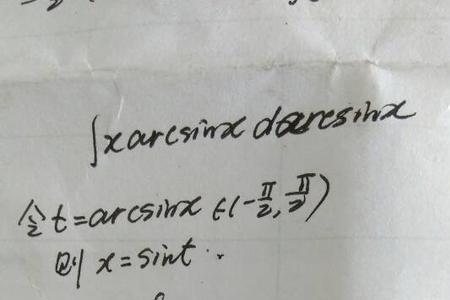 ∫x arcsinx darcsinx
令 t=arcsinx ∈(-π/2, π/2)
则 x=sint..